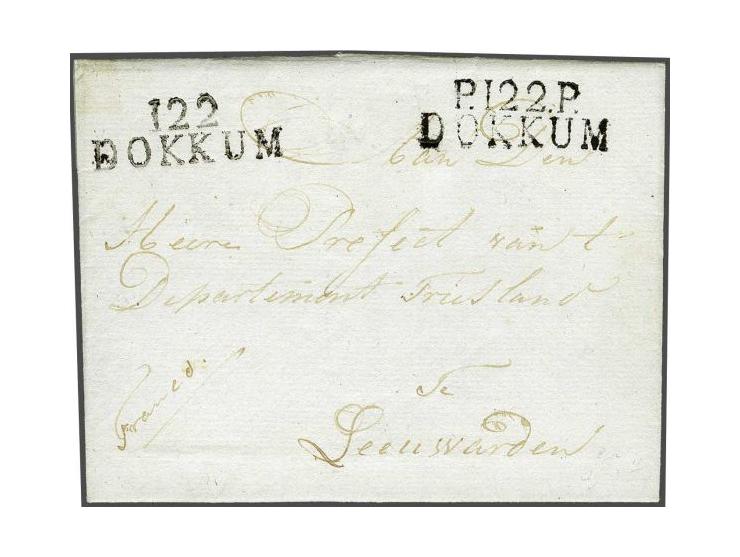 122
DOKKUM
P.122.P.
DOKKUM
Aan Den
Heere Prefect van t
Departement Friesland
Franco.
Te
Leeuwarden